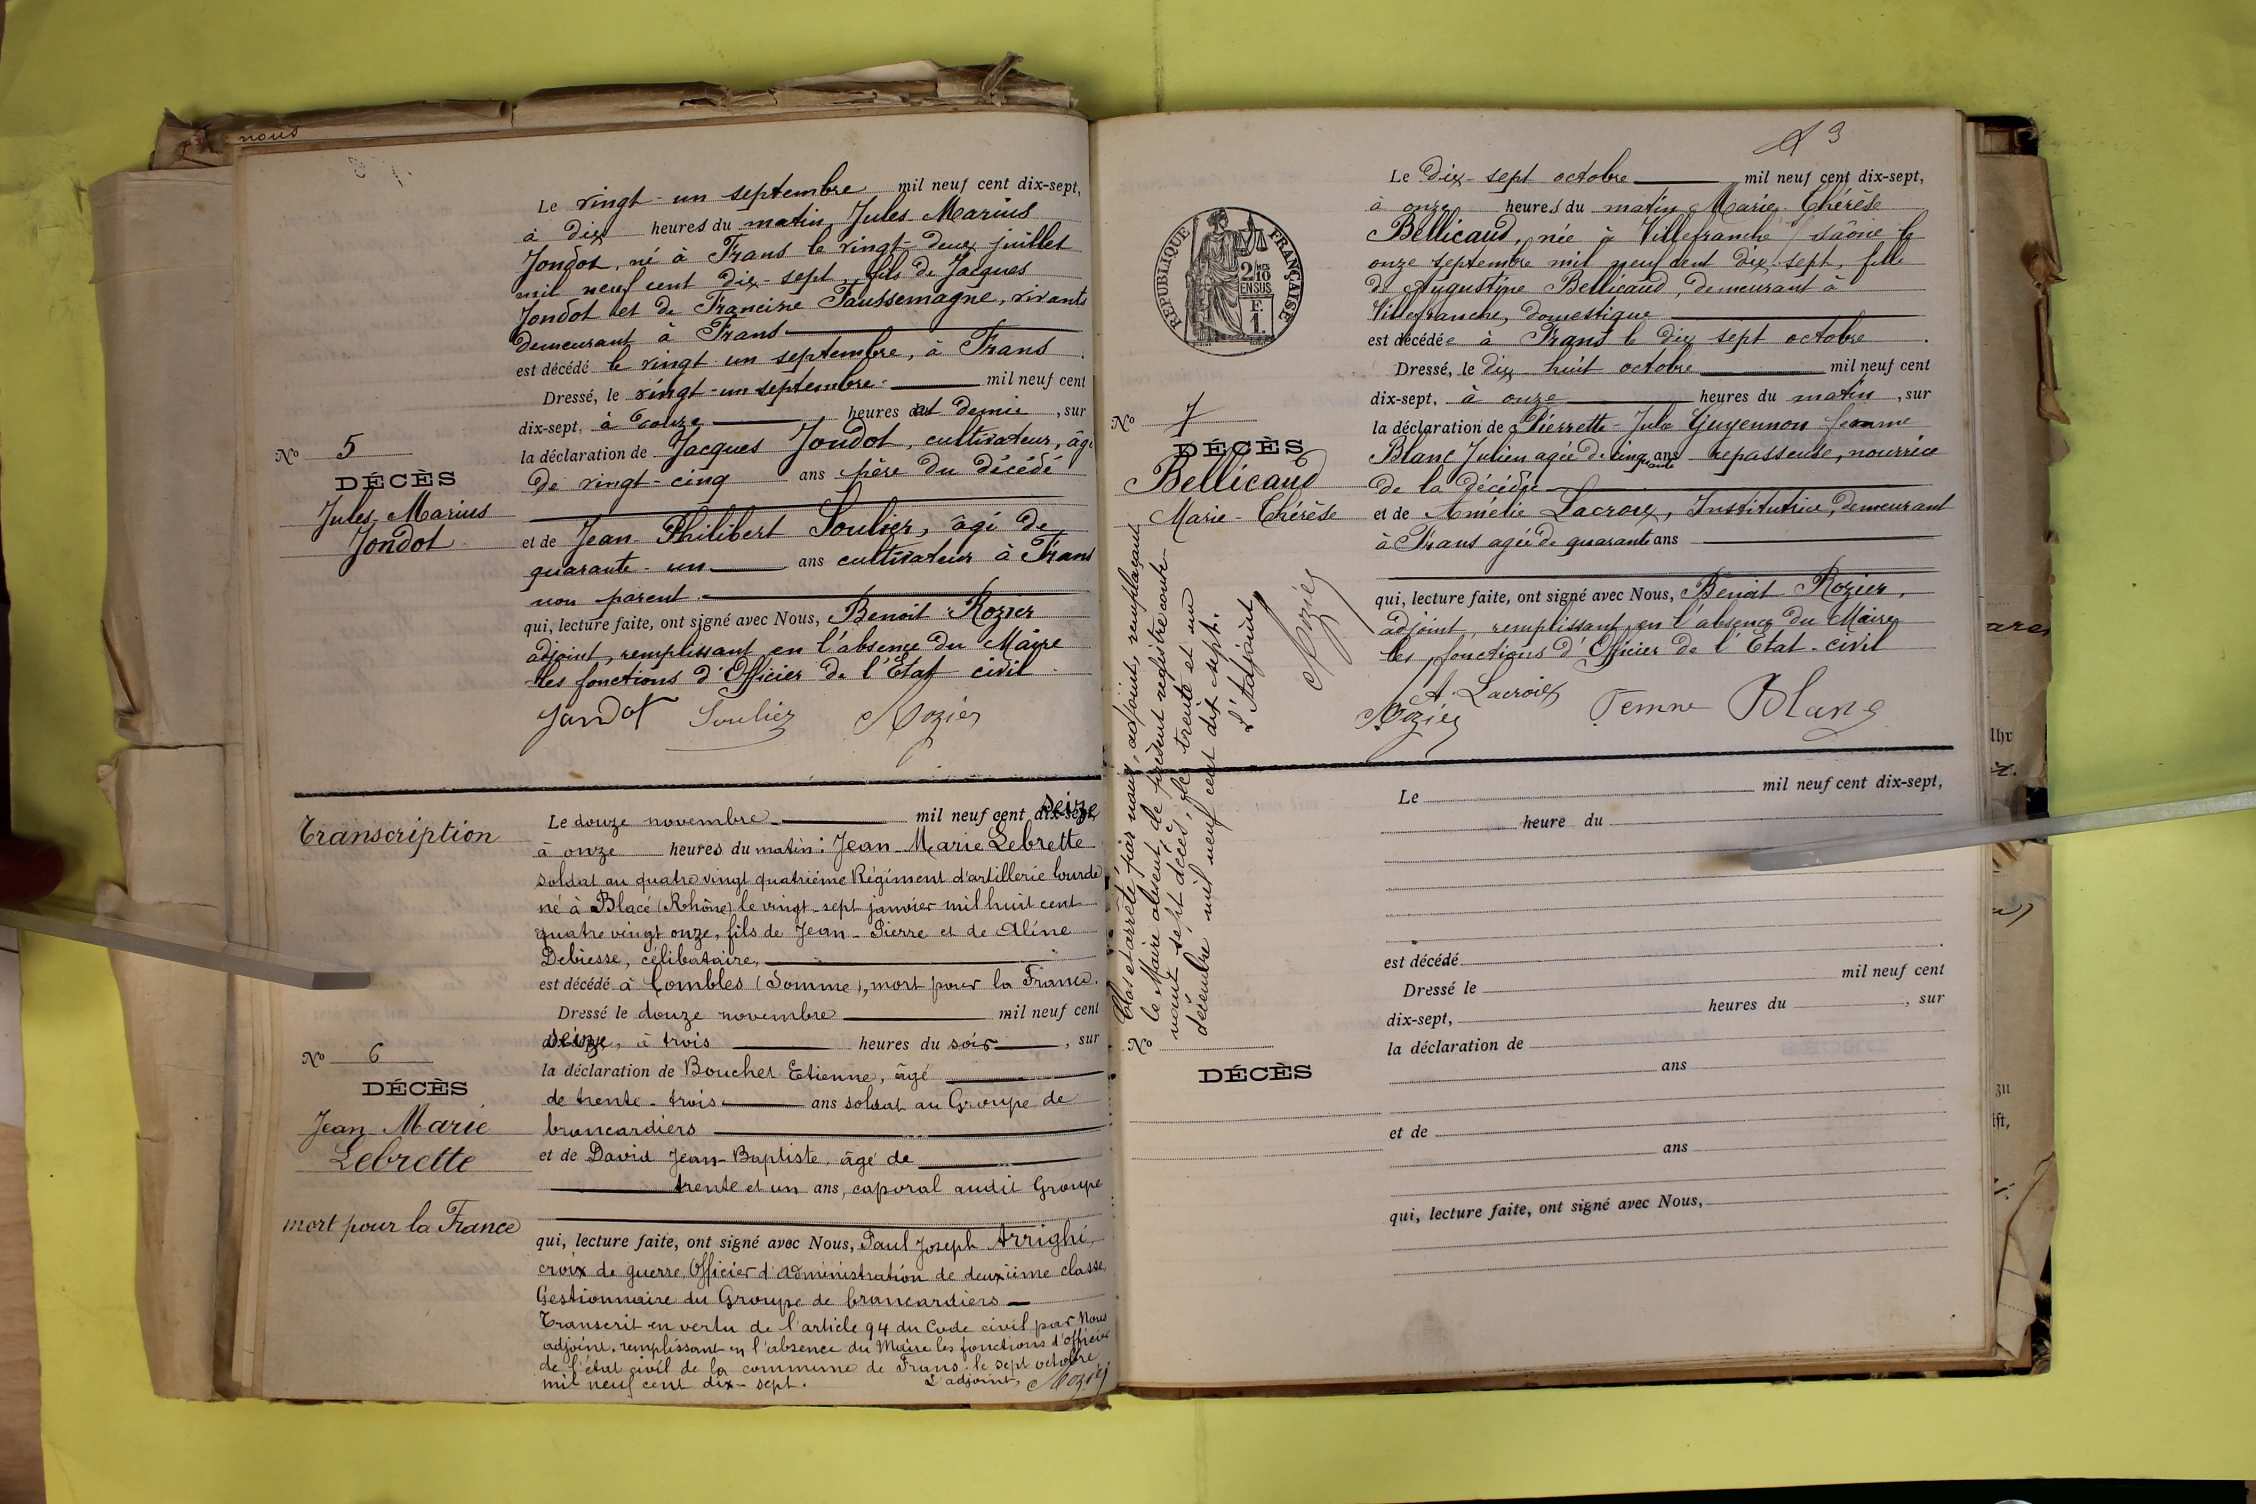 nous
Le vingt-un septembre mil neuf cent dix-sept,
à dix heures du matin, Jules Marius
Jondot, né à Frans le vingt-deux juillet
mil neuf cent dix-sept, fils de Jacques
Jondot et de Francine Taussemagne, vivants
demeurant à Frans
est décédé le vingt-un septembre, à Frans.
Dressé, le vingt-un septembre mil neuf cent
dix-sept, à heures et demie, sur
la déclaration de Jacques Jondot, cultivateur, âgé
de vingt-cinq ans père du décédé
et de Jean Philibert Soulier, âgé de
quarante-un ans cultivateur à Frans
non parent.
qui, lecture faite, ont signé avec Nous, Benoit Rozier
adjoint, remplissant en l'absence du Maire
les fonctions d'Officier de l'État civil.
Jondot Soulier Rozier
No 5
DÉCÈS
Jules Marius
Jondot
Transcription
Le douze novembre mil neuf cent dix-sept seize
à onze heures du matin: Jean-Marie Lebrette
soldat au quatre vingt quatrième Régiment d'artillerie lourde
né à Blacé (Rhône) le vingt-sept janvier mil huit cent
quatre vingt onze, fils de Jean-Pierre et de Aline
Debiesse, célibataire,
est décédé à Combles (Somme), mort pour la France.
Dressé le douze novembre mil neuf cent
seize, à trois heures du soir, sur
la déclaration de Bouchet Etienne, âgé
de trente-trois ans soldat au Groupe de
brancardiers
et de David Jean-Baptiste, âgé de
trente et un ans, caporal audit Groupe
qui, lecture faite, ont signé avec Nous, Paul Joseph Arrighi,
croix de guerre, Officier d'administration de deuxième classe,
Gestionnaire du Groupe de brancardiers
Transcrit en vertu de l'article 94 du Code civil par Nous
adjoint, remplissant en l'absence du Maire les fonctions d'officier
de l'état civil de la commune de Frans, le sept octobre
mil neuf cent dix-sept. L'adjoint, Rozier
No 6
DÉCÈS
Jean Marie
Lebrette
mort pour la France
RÉPUBLIQUE FRANÇAISE
2/10
EN SUS
F.
1.
Le dix-sept octobre mil neuf cent dix-sept,
à onze heures du matin Marie-Thérèse
Bellicaud, née à Villefranche s/ Saône le
onze septembre mil neuf cent dix sept, fille
de Augustine Bellicaud, demeurant à
Villefranche, domestique
est décédée à Frans le dix sept octobre.
Dressé, le dix-huit octobre mil neuf cent
dix-sept, à onze heures du matin, sur
la déclaration de Pierrette-Julie Guyennon femme
Blanc Julien agée de cinquante ans repasseuse, nourrice
de la décédée
et de Amélie Lacroix, Institutrice, demeurant
à Frans agée de quarante ans
qui, lecture faite, ont signé avec Nous, Benoit Rozier,
adjoint, remplissant en l'absence du Maire
les fonctions d'Officier de l'État-civil
A. Lacroix
Rozier Femme Blanc
No 7
DÉCÈS
Bellicaud
Marie-Thérèse
Clos et arrêté par nous, adjoint, remplaçant
le Maire absent, le présent registre conte-
nant sept décès, le trente et un
décembre mil neuf cent dix sept.
L'Adjoint,
Rozier
Le mil neuf cent dix-sept,
heure du
est décédé
Dressé le mil neuf cent
dix-sept, heures du , sur
la déclaration de
ans
et de
ans
qui, lecture faite, ont signé avec Nous,
No
DÉCÈS